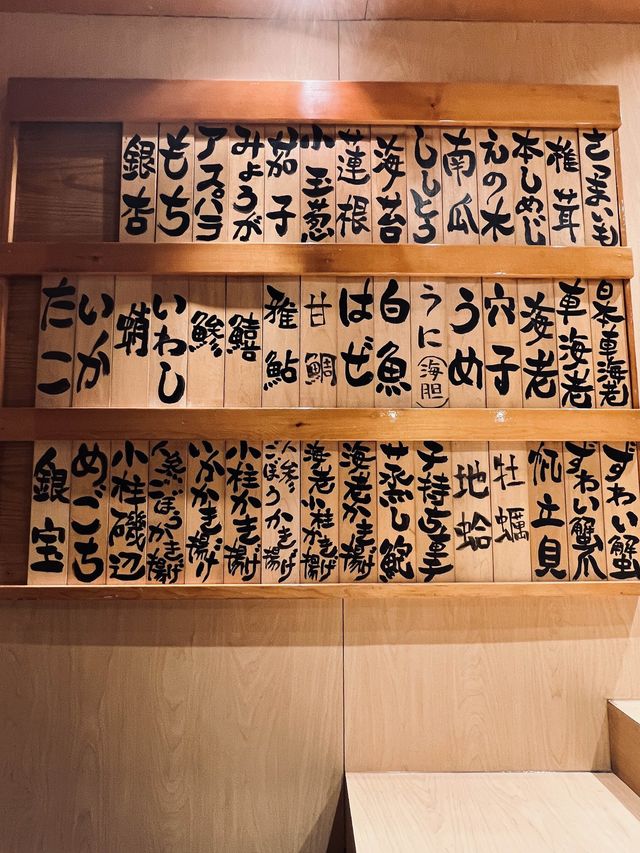 さつまいも
椎茸
本しめじ
えの木
南瓜
ししとう
海苔
蓮根
小玉葱
茄子
みょうが
アスパラ
もち
銀杏
日本車海老
車海老
海老
穴子
うめ
うに(海胆)
白魚
はぜ
甘鯛
稚鮎
鱚
鯵
いわし
蛸
いか
たこ
ずわい蟹
ずわい蟹爪
帆立貝
牡蠣
地蛤
蒸し鮑
海老かき揚げ
海老小柱かき揚げ
人参ごぼうかき揚げ
小柱かき揚げ
いかかき揚げ
人参ごぼうかき揚げ
小柱磯辺
めごち
銀宝